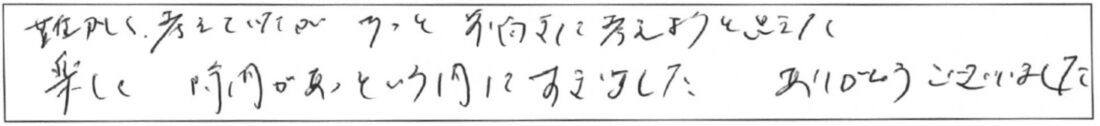 難しく考えていたが もっと前向きに考えようと思えた
楽しく 時間があっという間にすぎました ありがとうございました